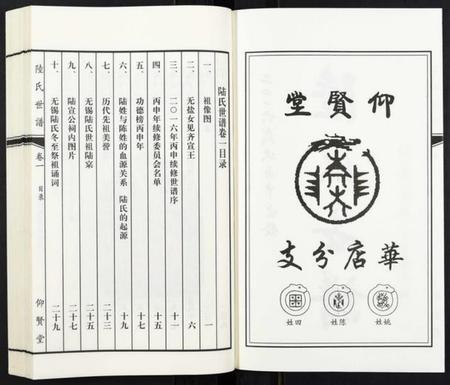 仰賢堂
華店分支
姚姓
陈姓
田姓
陆氏世谱卷一目录
一、祖像图 一
二、无盐女见齐宣王 六
三、二〇一六年丙申续修世谱序 十一
四、丙申年续修委员会名单 十五
五、功德榜丙申年 十七
六、陆姓与陈姓的血源关系 陆氏的起源 十九
七、历代先祖美誉 二十三
八、无锡陆氏世祖陆寀 二十五
九、陆宣公祠内图片 二十七
十、无锡陆氏冬至祭祖诵词 二十九
陸氏世譜 卷一 目录 仰賢堂